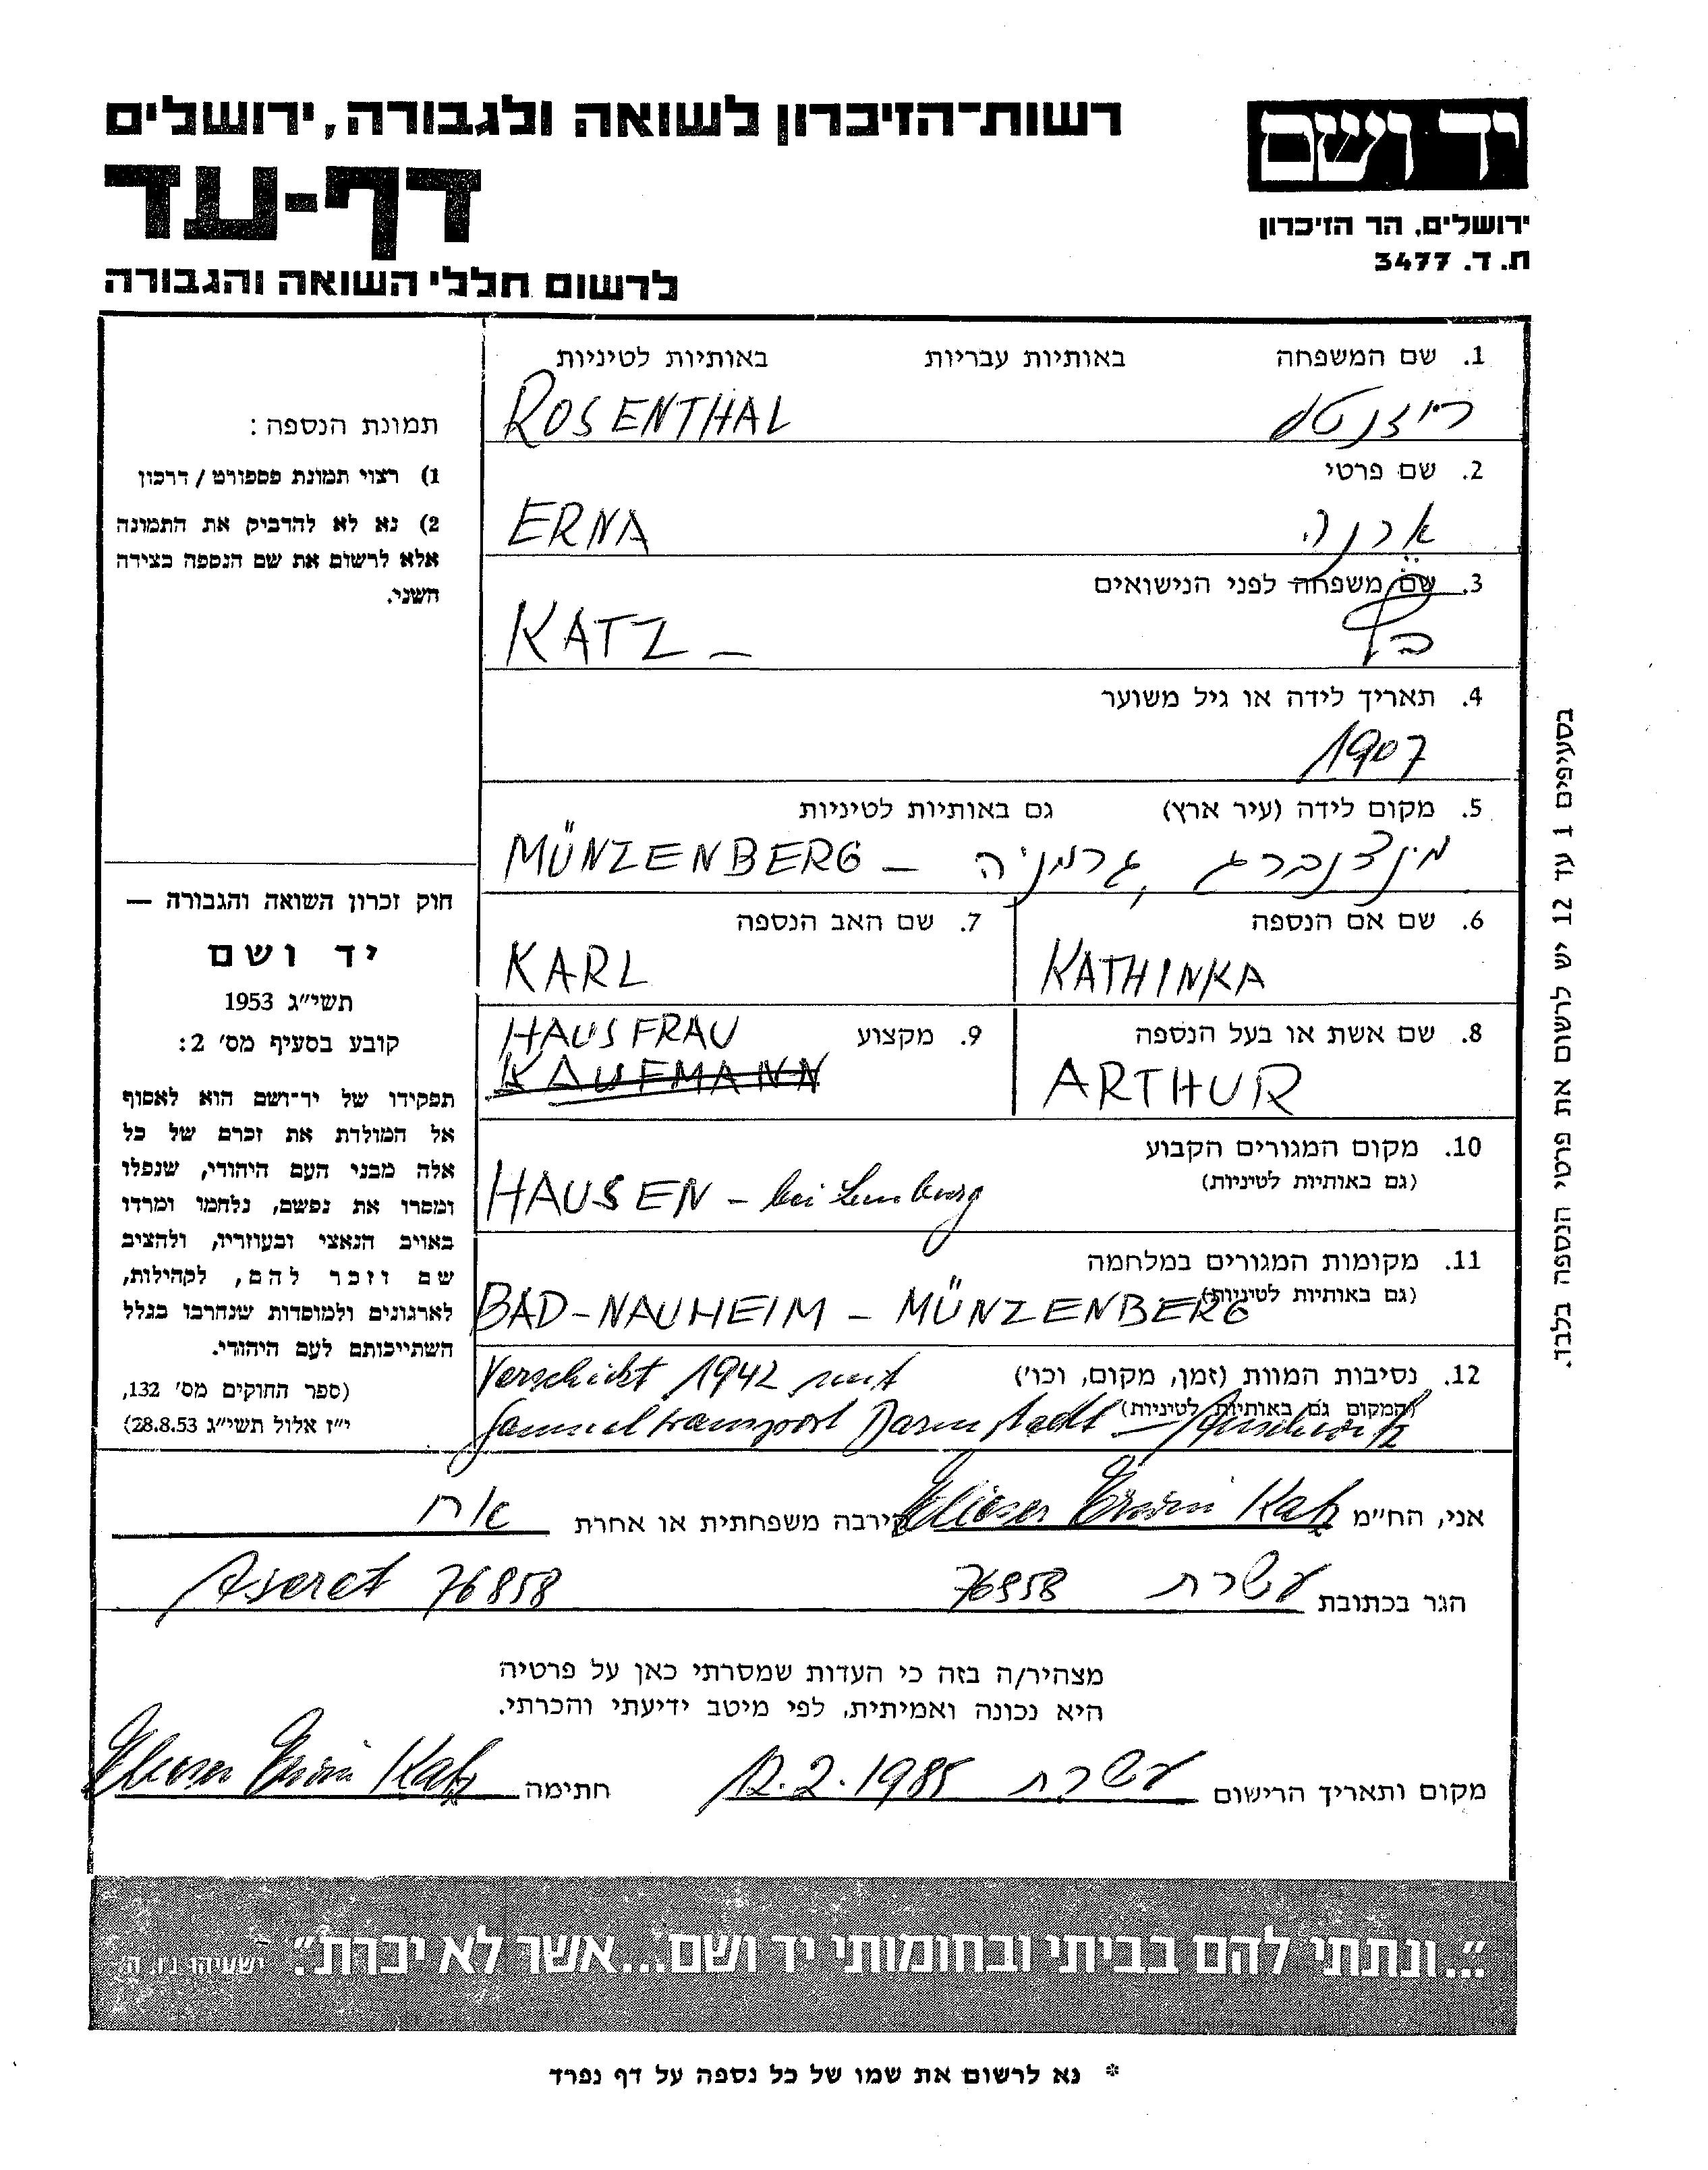 רשות־הזיכרון לשואה ולגבורה, ירושלים
יד ושם
דף-עד
ירושלים, הר הזיכרון
ת. ד. 3477
לרשום חללי השואה והגבורה
1. שם המשפחה באותיות עבריות באותיות לטיניות
ROSENTHAL
2. שם פרטי
ארנה ERNA
3. שם משפחה לפני הנישואים
כץ KATZ –
4. תאריך לידה או גיל משוער
1907
5. מקום לידה (עיר ארץ) גם באותיות לטיניות
מינצנברג, גרמניה – MÜNZENBERG
6. שם אם הנספה 7. שם האב הנספה
KATHINKA KARL
8. שם אשת או בעל הנספה 9. מקצוע HAUSFRAU
ARTHUR KAUFMANN
10. מקום המגורים הקבוע
(גם באותיות לטיניות)
HAUSEN – bei
11. מקומות המגורים במלחמה
(גם באותיות לטיניות)
BAD-NAUHEIM – MÜNZENBERG
12. נסיבות המוות (זמן, מקום, וכו') Verschickt 1942 mit
(המקום גם באותיות לטיניות)
Sammeltransport Darmstadt – Auschwitz
תמונת הנספה:
1) רצוי תמונת פספורט / דרכון
2) נא לא להדביק את התמונה
אלא לרשום את שם הנספה בצידה
השני.
חוק זכרון השואה והגבורה —
יד ושם
תשי״ג 1953
קובע בסעיף מס׳ 2:
תפקידו של יד־ושם הוא לאסוף
אל המולדת את זכרם של כל
אלה מבני העם היהודי, שנפלו
ומסרו את נפשם, נלחמו ומרדו
באויב הנאצי ובעוזריו, ולהציב
שם וזכר להם, לקהילות,
לארגונים ולמוסדות שנחרבו בגלל
השתייכותם לעם היהודי.
(ספר החוקים מס׳ 132,
י״ז אלול תשי״ג 28.8.53)
בסעיפים 1 עד 12 יש לרשום את פרטי הנספה בלבד.
אני, הח״מ Elieser Erwin Katz קירבה משפחתית או אחרת אח
הגר בכתובת עשרת 76858 Aseret 76858
מצהיר/ה בזה כי העדות שמסרתי כאן על פרטיה
היא נכונה ואמיתית, לפי מיטב ידיעתי והכרתי.
מקום ותאריך הרישום עשרת 12.2.1985 חתימה Elieser Erwin Katz
״...ונתתי להם בביתי ובחומותי יד ושם...אשר לא יכרת״. ישעיהו נו, ה
* נא לרשום את שמו של כל נספה על דף נפרד